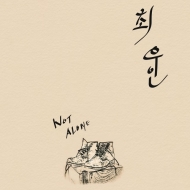 최
우
인
NOT
ALONE